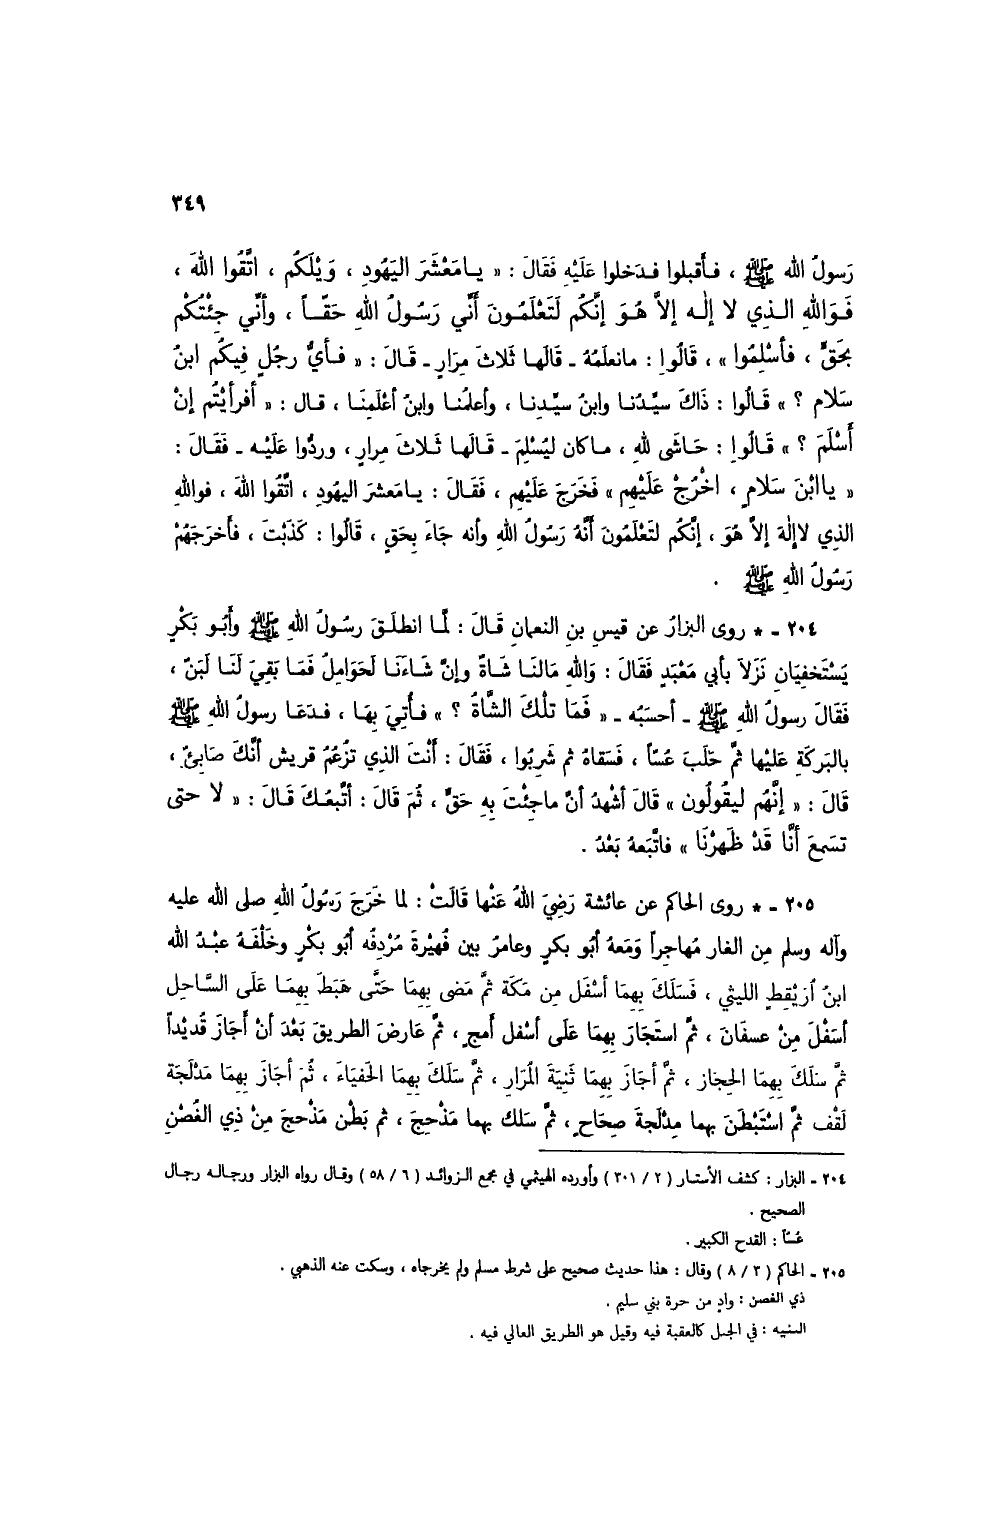 ٣٤٩
رَسولُ الله ﷺ ، فأَقبلوا فدَخلوا عَلَيْهِ فَقَالَ : « يامَعْشَرَ اليَهُودِ ، وَيْلَكُم ، اتَّقُوا اللهَ ،
فَوَاللهِ الذِي لا إلٰه إلاَّ هُوَ إنَّكُم لَتَعْلَمُونَ أَنِّي رَسُولُ اللهِ حَقّاً ، وأنِّي جِئْتُكُم
بِحَقٍّ ، فأسْلِمُوا » ، قَالُوا : مانعلَمُهُ ـ قَالَها ثَلاثَ مِرَارٍ ـ قَالَ : « فأيُّ رجُلٍ فِيكُم ابنُ
سَلام ؟ » قَالُوا : ذَاكَ سيِّدُنا وابنُ سيِّدِنا ، وأعلمُنا وابنُ أعْلَمِنَا ، قال : « أَفرأيْتُم إنْ
أَسْلَمَ ؟ » قَالُوا : حَاشَى للهِ ، ماكان ليُسْلِمَ ـ قَالَها ثَلاثَ مِرارٍ ، وردُّوا عَلَيْه ـ فَقَالَ :
« ياابْنَ سَلامٍ ، اخْرُجْ عَلَيْهِم » فَخَرَجَ عَلَيْهِم ، فَقَالَ : يامَعشرَ اليهُودِ ، اتَّقُوا اللهَ ، فواللهِ
الذي لاإلٰهَ إلاَّ هُوَ ، إنَّكُم لتَعْلَمُونَ أَنَّهُ رَسُولُ اللهِ وأنه جَاءَ بِحَقٍ ، قَالُوا : كَذَبْتَ ، فَأَخرَجَهُمْ
رَسُولُ اللهِ ﷺ .
٢٠٤ ـ * روى البزارُ عن قيسِ بنِ النعمانِ قَالَ : لمَّا انطلَقَ رسُولُ اللهِ ﷺ وأَبُو بَكْرٍ
يَسْتَخفِيَانِ نَزَلاَ بأبي مَعْبَدٍ فَقَالَ : وَاللهِ مَالنَا شَاةٌ وإنَّ شَاءَنَا لَحَوَامِلُ فَمَا بَقِيَ لَنَا لَبَنٌ ،
فَقَالَ رسولُ اللهِ ﷺ ـ أحسَبُه ـ « فَمَا تلْكَ الشَّاةُ ؟ » فأُتِيَ بِهَا ، فدَعَا رسولُ اللهِ ﷺ
بالبَركَةِ عَلَيْها ثمَّ حَلَبَ عُسّاً ، فَسَقاهُ ثم شَرِبُوا ، فَقَالَ : أَنْتَ الذِي تزْعُمُ قريش أَنَّكَ صَابِئٌ ،
قَالَ : « إنَّهُم ليقُولُون » قَالَ أشْهدُ أنَّ ماجِئْتَ بِهِ حَقٌّ ، ثُمَ قَالَ : أَتَّبعُكَ قَالَ : « لا حتى
تسَمعَ أَنَّا قَدْ ظَهرْنَا » فاتَّبَعهُ بَعْدُ .
٢٠٥ ـ * روى الحاكم عن عائشة رَضِيَ اللهُ عَنْها قَالَتْ : لما خَرَجَ رَسُولُ اللهِ صلى الله عليه
وآله وسلم مِن الغار مُهاجراً وَمَعهُ أَبُو بكرٍ وعامرُ بين فُهَيْرةَ مُرْدِفُه أَبُو بكْرٍ وخَلْفَهُ عبْدُ الله
ابنُ أرَيْقِطٍ الليثي ، فَسَلَكَ بِهِمَا أسْفَل مِن مَكَة ثمَّ مَضى بِهِمَا حَتَّى هَبَطَ بِهِمَا عَلَى السَّاحِل
أسَفْلَ مِنْ عسفَانَ ، ثمَّ استَجَازَ بِهِمَا عَلَى أسْفل أمج ، ثمَّ عَارضَ الطريقَ بَعْدَ أنْ أَجَازَ قُديْداً
ثمَّ سَلَكَ بِهِمَا الحِجاز ، ثمَّ أجَازَ بِهِمَا ثَنِيَةَ المُرَارِ ، ثمَّ سَلَكَ بِهِمَا الحَفيَاءَ ، ثُمَ أجَازَ بِهِمَا مَدْلَجَة
لَقْف ثمَّ اسْتَبْطَنَ بهما مِدْلَجةَ صِحَاحٍ ، ثمَّ سَلك بِهما مَذْحِجَ ، ثم بَطْن مَذْحجَ مِنْ ذِي الغُصْن
٢٠٤ ـ البزار : كشف الأستار ( ٢ / ٣٠١ ) وأورده الهيثمي في مجمع الزوائد ( ٦ / ٥٨ ) وقال رواه البزار ورجاله رجال
الصحيح .
عُسّاً : القدح الكبير .
٢٠٥ ـ الحاكم ( ٣ / ٨ ) وقال : هذا حديث صحيح على شرط مسلم ولم يخرجاه ، وسكت عنه الذهبي .
ذي الغصن : وادٍ من حرة بني سليم .
الثنيه : في الجبل كالعقبة فيه وقيل هو الطريق العالي فيه .